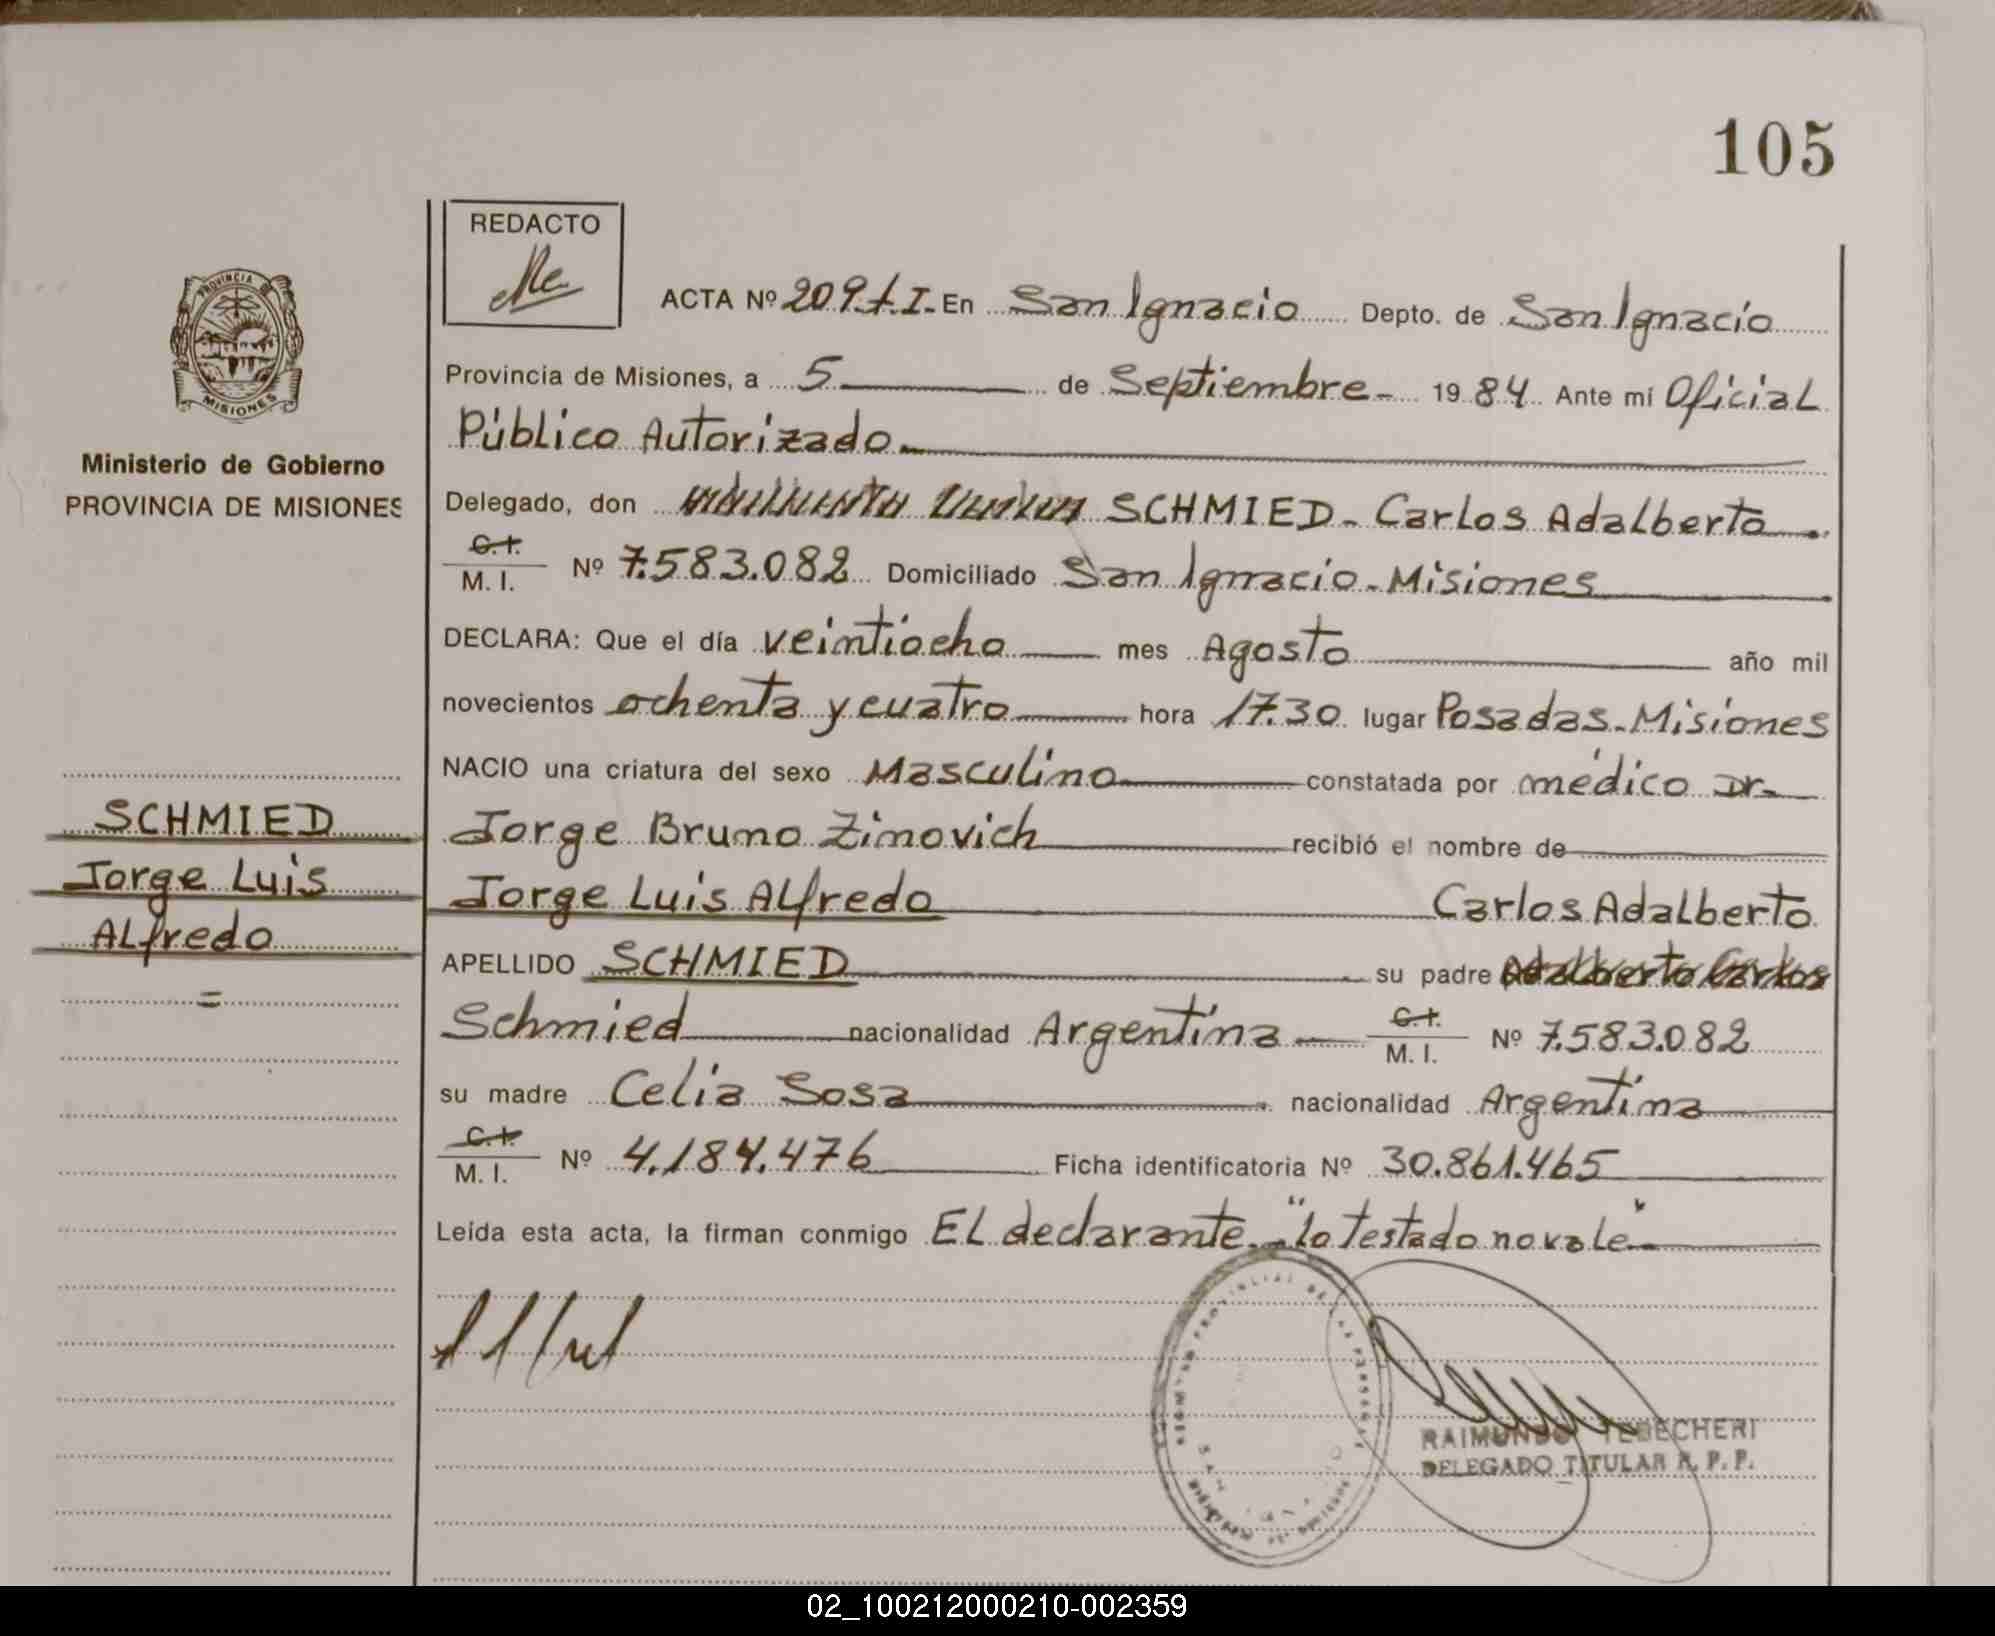 105
REDACTO
ACTA Nº 209. t. I. En San Ignacio Depto. de San Ignacio
Provincia de Misiones, a 5 de Septiembre 1984 Ante mí Oficial
Público Autorizado
Delegado, don SCHMIED - Carlos Adalberto
C. I.
M. I. Nº 7.583.082 Domiciliado San Ignacio - Misiones
DECLARA: Que el día veintiocho mes Agosto año mil
novecientos ochenta y cuatro hora 17.30 lugar Posadas - Misiones
NACIO una criatura del sexo Masculino constatada por médico Dr.
Jorge Bruno Zinovich recibió el nombre de
Jorge Luis Alfredo Carlos Adalberto
APELLIDO SCHMIED su padre Adalberto Carlos
Schmied nacionalidad Argentina C. I. M. I. Nº 7.583.082
su madre Celia Sosa nacionalidad Argentina
C. I.
M. I. Nº 4.184.476 Ficha identificatoria Nº 30.861.465
Leída esta acta, la firman conmigo El declarante. - "lo testado no vale" -
RAIMUNDO TEDECHERI
DELEGADO TITULAR R. P. P.
PROVINCIA DE
MISIONES
Ministerio de Gobierno
PROVINCIA DE MISIONES
SCHMIED
Jorge Luis
Alfredo
=
02_100212000210-002359